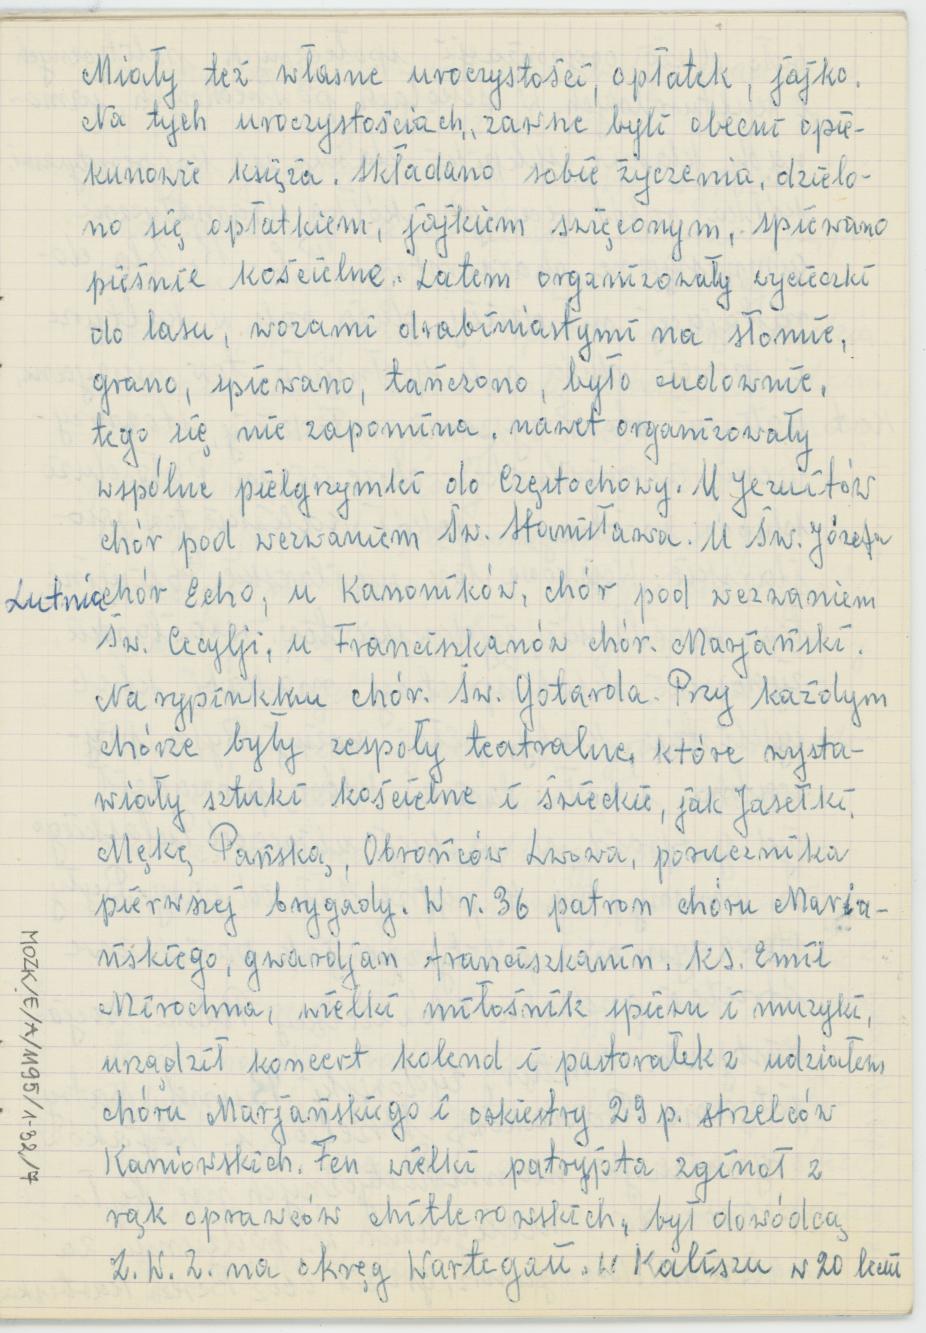 Miały też własne uroczystości, opłatek, jajko.
Na tych uroczystościach, zawsze byli obecni opie-
kunowie księża. Składano sobie życzenia, dzielo-
no się opłatkiem, jajkiem święconym, spiewano
pieśnie kościelne. Latem organizowały wycieczki
do lasu, wozami drabiniastymi na słomie,
grano, spiewano, tańczono, było cudownie,
tego się nie zapomina. nawet organizowały
wspólne pielgrzymki do Częstochowy. U Jezuitów
chór pod wezwaniem Św. Stanisława. U Św. Józefa
Lutnia chór Echo, u Kanoników, chór pod wezwaniem
Św. Cecylji, u Franciszkanów chór. Marjański.
Na rypinkku chór. Św. Gotarda. Przy każdym
chórze były zespoły teatralne, które wysta-
wiały sztuki kościelne i świeckie, jak Jasełki,
Mękę Pańską, Obrońców Lwowa, porucznika
pierwszej brygady. W r. 36 patron chóru Marja-
ńskiego, gwardjan franciszkanin. ks. Emil
Mirochna, wielki miłośnik spiewu i muzyki,
urządził koncert kolend i pastorałek z udziałem
chóru Marjańskiego i orkiestry 29 p. strzelców
Kaniowskich. Ten wielki patryjota zginoł z
rąk oprawców chitlerowskich, był dowódcą
Z. W. Z. na okręg Wartegau. w Kaliszu w 20 leciu
MOZK/E/A/M95/1-32/7